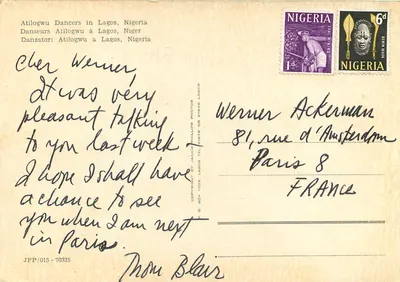 Atilogwu Dancers in Lagos, Nigeria
Danseurs Atilogwu à Lagos, Niger
Danzatori Atilogwu a Lagos, Nigeria
Cher Werner
It was very
pleasant talking
to you last week –
I hope I shall have
a chance to see
you when I am next
in Paris.
Thom Blair
JPP/015 - 70325
NIGERIA
1d
NIGERIA
6d
BENIN MASK
Werner Ackerman
81, rue d'Amsterdam
Paris 8
FRANCE